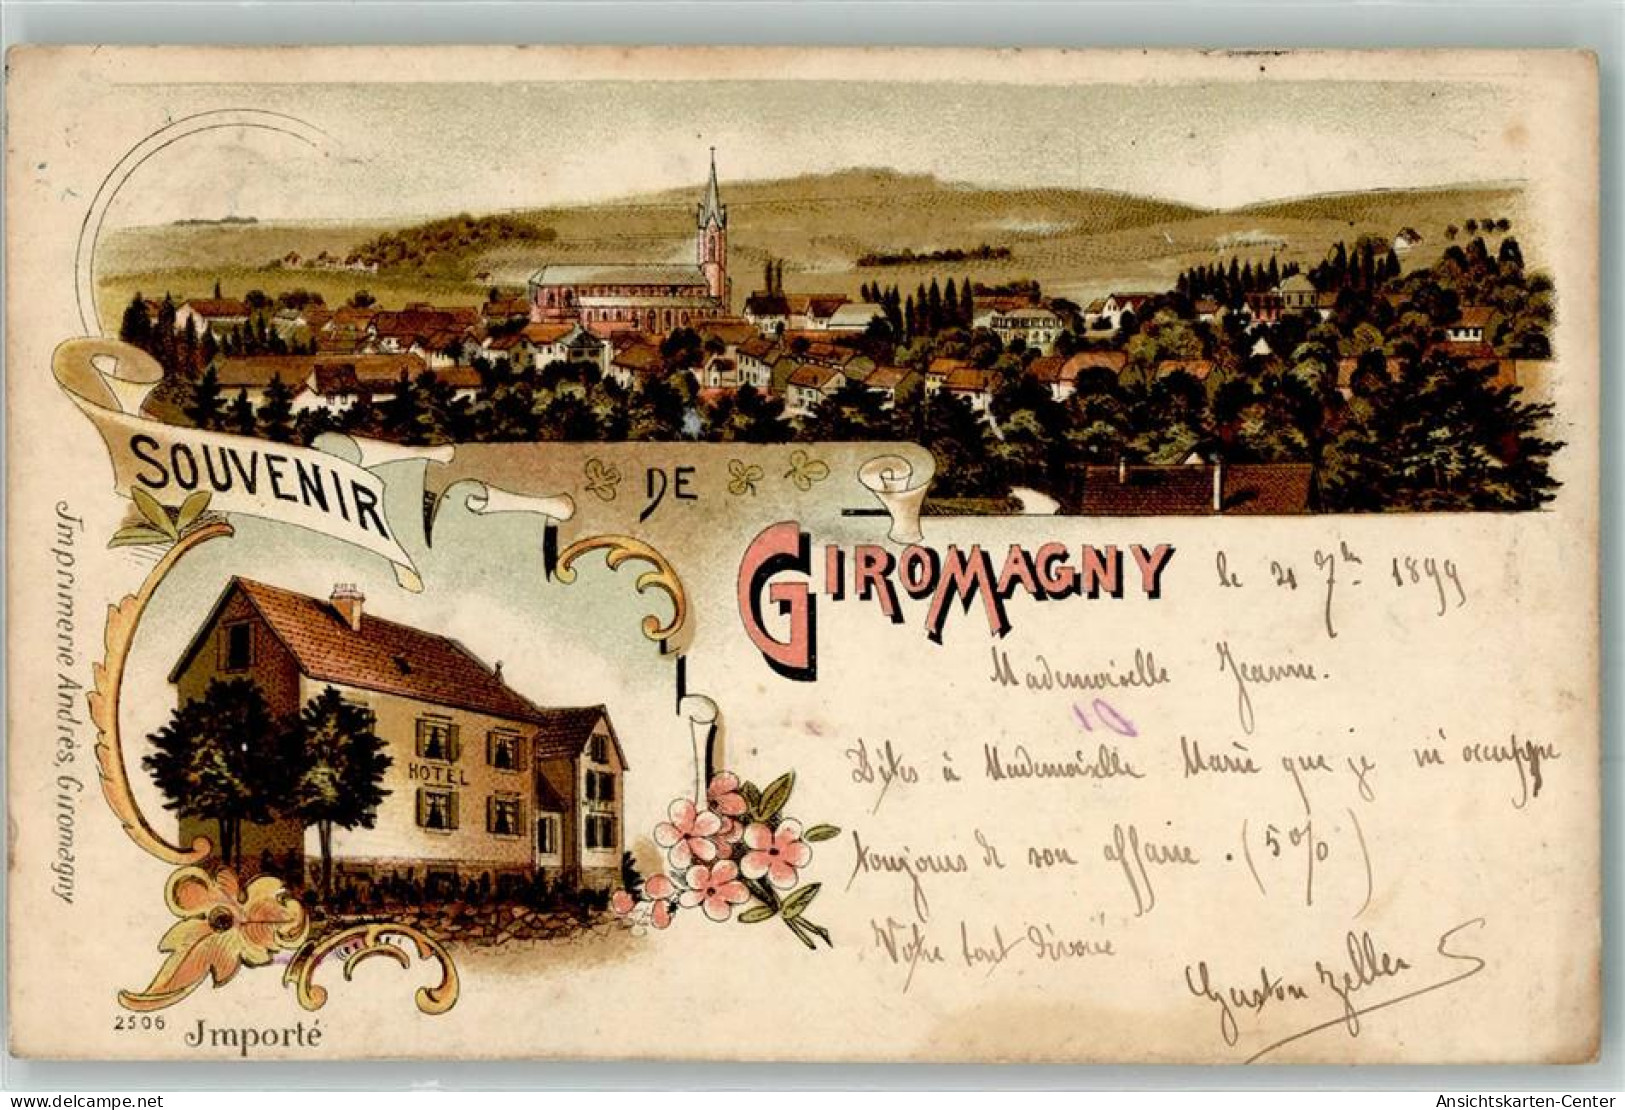 SOUVENIR
DE
GIROMAGNY
le 21 7bre 1899
Mademoiselle Jeanne.
Dites à Mademoiselle Marie que je m'occuppe
toujours de son affaire. (5%)
Votre tout dévoué
Gaston Zeller
HOTEL
Imprimerie Andrès, Giromagny
2506
Importé
Ansichtskarten-Center
delcampe.net
Ansichtskarten-Center